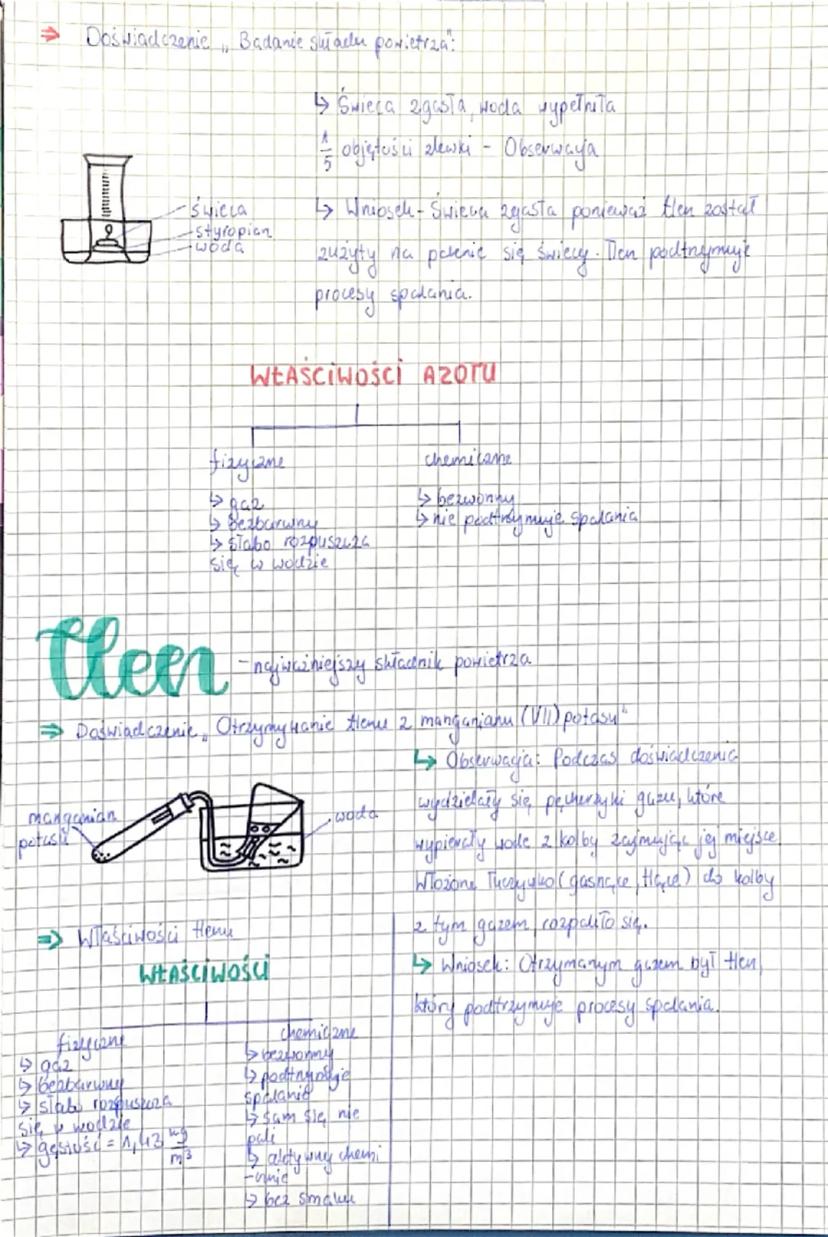 ⇒ Doświadczenie „Badanie składu powietrza":
↳ Świeca zgasła, woda wypełniła
1/5 objętości zlewki - Obserwacja
świeca
styropian
woda
↳ Wniosek - Świeca zgasła ponieważ tlen został
zużyty na palenie się świecy. Tlen podtrzymuje
procesy spalania.
WŁAŚCIWOŚCI AZOTU
fizyczne
↳ gaz
↳ bezbarwny
↳ słabo rozpuszcza
się w wodzie
chemiczne
↳ bezwonny
↳ nie podtrzymuje spalania
Tlen - najważniejszy składnik powietrza
⇒ Doświadczenie „Otrzymywanie tlenu z manganianu (VII) potasu"
manganian
potasu
woda
↳ Obserwacja: Podczas doświadczenia
wydzielały się pęcherzyki gazu, które
wypierały wodę z kolby zajmując jej miejsce.
Włożone łuczywko (gasnące, tlące) do kolby
z tym gazem, rozpaliło się.
↳ Wniosek: Otrzymanym gazem był tlen,
który podtrzymuje procesy spalania.
⇒ Właściwości tlenu
WŁAŚCIWOŚCI
fizyczne
↳ gaz
↳ bezbarwny
↳ słabo rozpuszcza
się w wodzie
↳ gęstość = 1,43 kg/m³
chemiczne
↳ bezwonny
↳ podtrzymuje
spalanie
↳ sam się nie
pali
↳ aktywny chemi
-cznie
↳ bez smaku